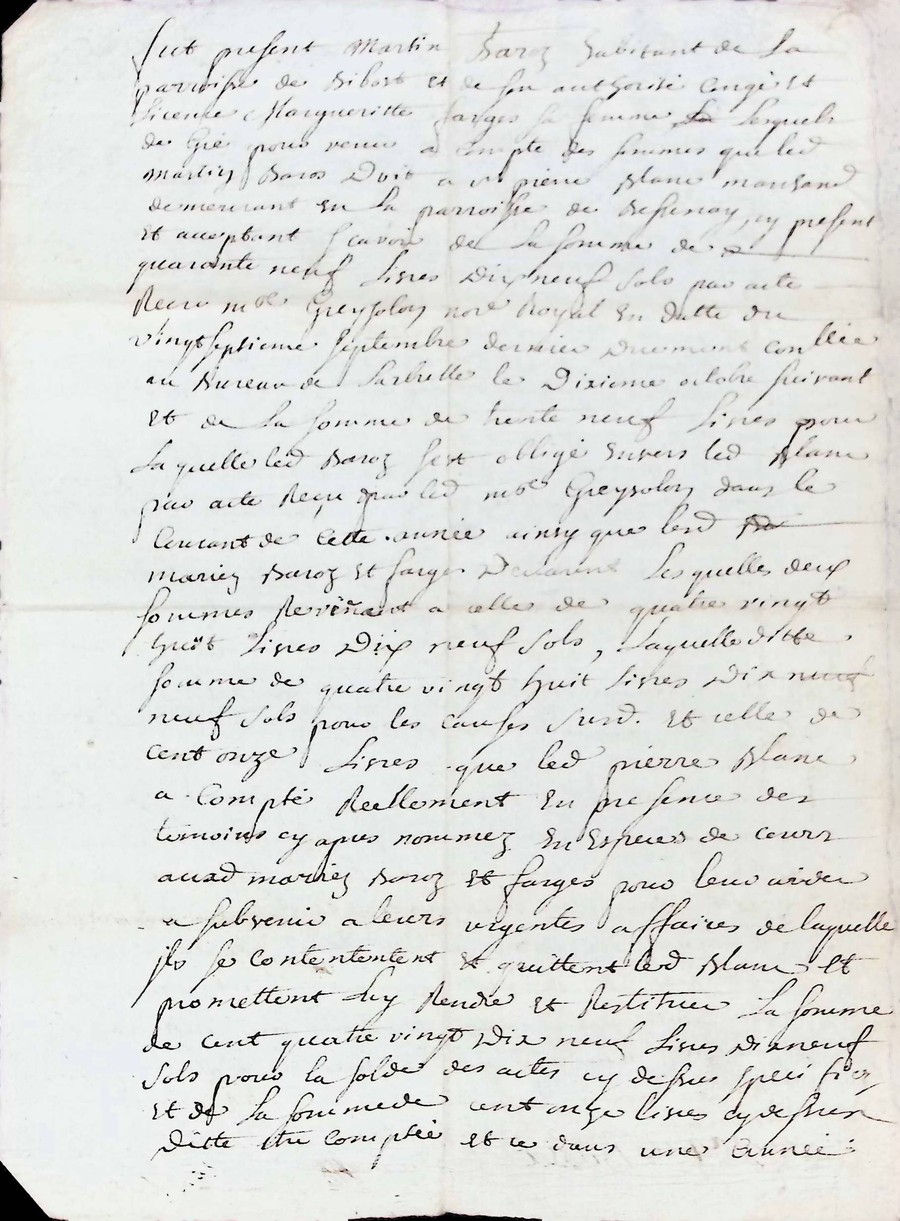 fut present Martin Baroz habitant de La
parroisse de Bibost et de son authorité congé et
Licence Margueritte farges sa femme Lesquels
de Gré pour venir a compte des sommes que led
Martin Baros Doit a sr pierre Blanc marchand
demeurant En La parroisse de Bessenay, cy present
Et acceptant scavoir de La somme de
quarante neuf Livres Dixneuf sols par acte
Receu me Greysolon nore Royal En datte du
vingtseptieme septembre dernier Duement conllée
au Bureau de Larbrelle le Dixieme octobre suivant
Et de La somme de trente neuf Livres pour
Laquelle led Baroz s'est obligé Envers led Blanc
par acte Receu par led me Greysolon dans le
Courant de cette année ainsy que lesd
mariez Baroz Et farges Declarent Lesquelles deux
sommes Reviènant a celle de quatre vingt
huit Livres Dix neuf sols, Laquelle ditte
somme de quatre vingt huit Livres Dix neuf
neuf sols pour les causes susd. Et celle de
cent onze Livres que led pierre Blanc
a Compté Reellement En presence des
temoins cy apres nommez En Especes de cours
auxd mariez Baroz Et farges pour leur aider
a subvenir a leurs urgentes affaires de laquelle
ils se contentent Et quittent led Blanc Et
promettent Luy Rendre Et Restituer La somme
de cent quatre vingt Dix neuf Livres Dixneuf
sols pour la solde des actes cy dessus speciffiez
Et de La somme de cent onze livres cy dessus
Ditte comptée et ce dans une année